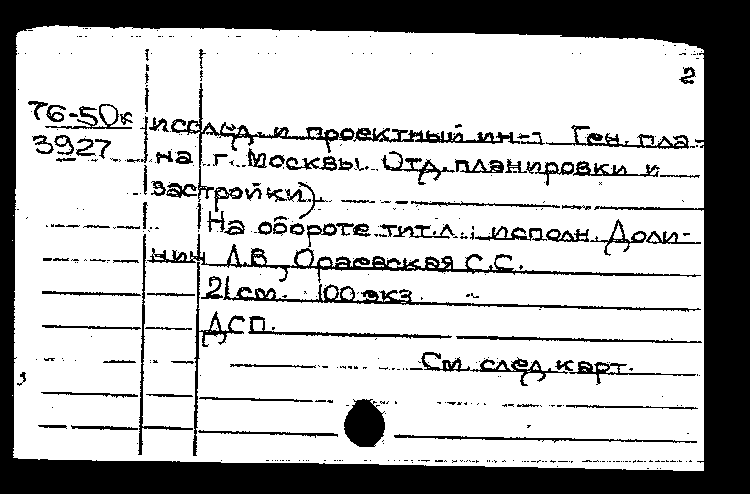 2
76-50к
3927
исслед. и проектный ин-т Ген. пла-
на г. Москвы. Отд. планировки и
застройки).
На обороте тит.л.: исполн. Доли-
нин Л.В., Ораевская С.С.
21 см. 100 экз.
ДСП.
См. след. карт.